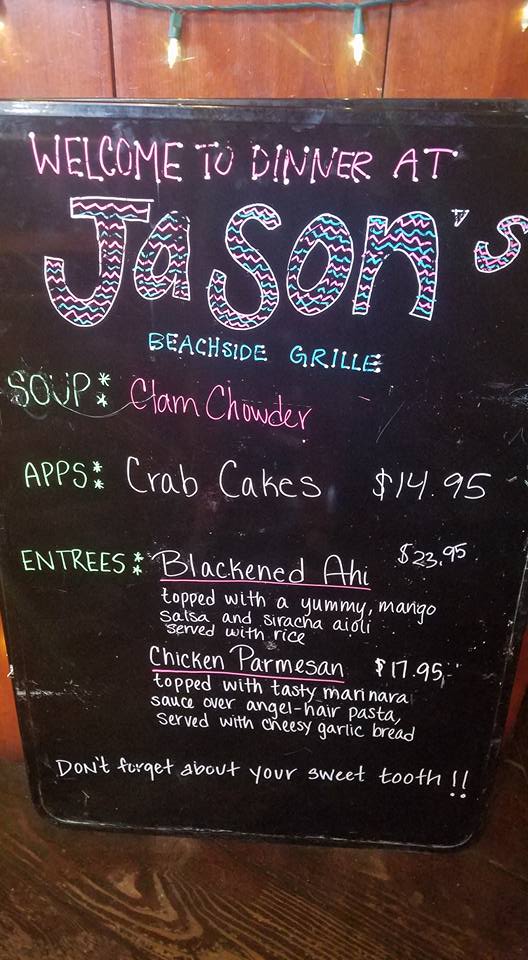 WELCOME TO DINNER AT
Jason's
BEACHSIDE GRILLE
SOUP: Clam Chowder
APPS: Crab Cakes $14.95
ENTREES: Blackened Ahi $23.95
topped with a yummy, mango
salsa and siracha aioli
served with rice
Chicken Parmesan $17.95
topped with tasty marinara
sauce over angel-hair pasta,
served with cheesy garlic bread
Don't forget about your sweet tooth!!